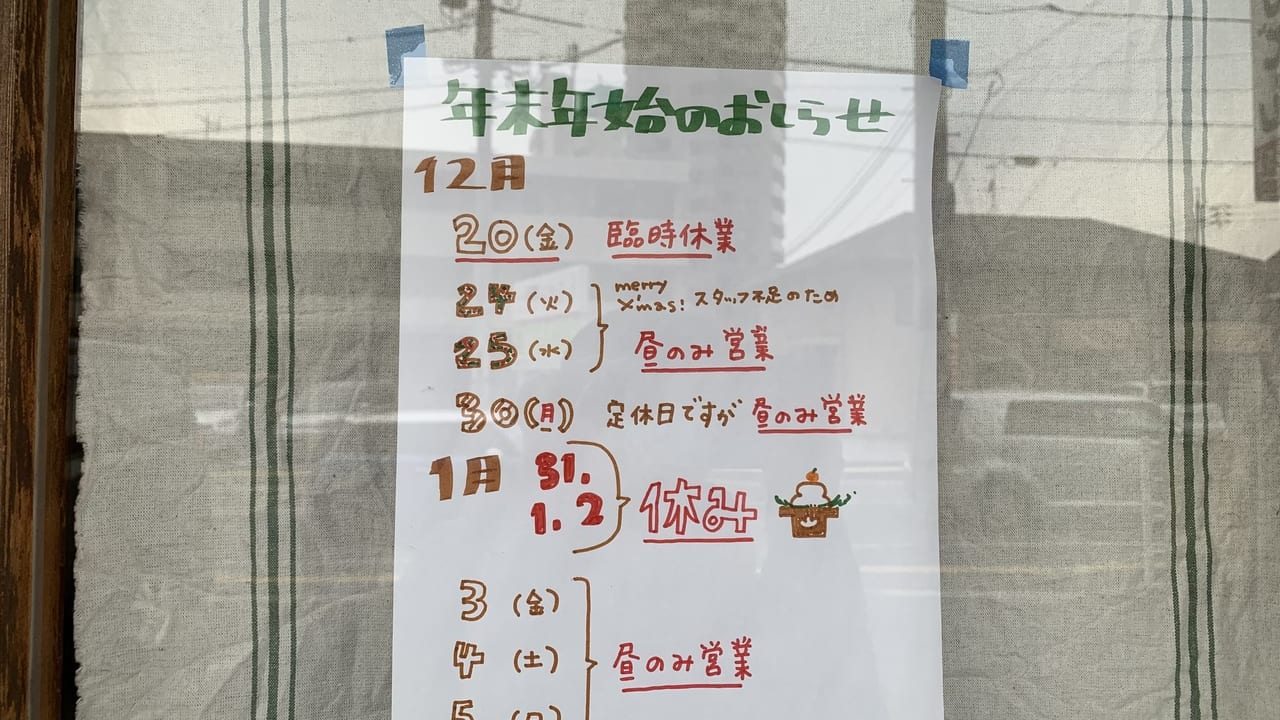 年末年始のおしらせ
12月
20(金) 臨時休業
24(火) merry
X'mas! スタッフ不足のため
25(水) 昼のみ営業
30(月) 定休日ですが 昼のみ営業
1月 31.
1.2 休み
3(金)
4(土) 昼のみ営業
5